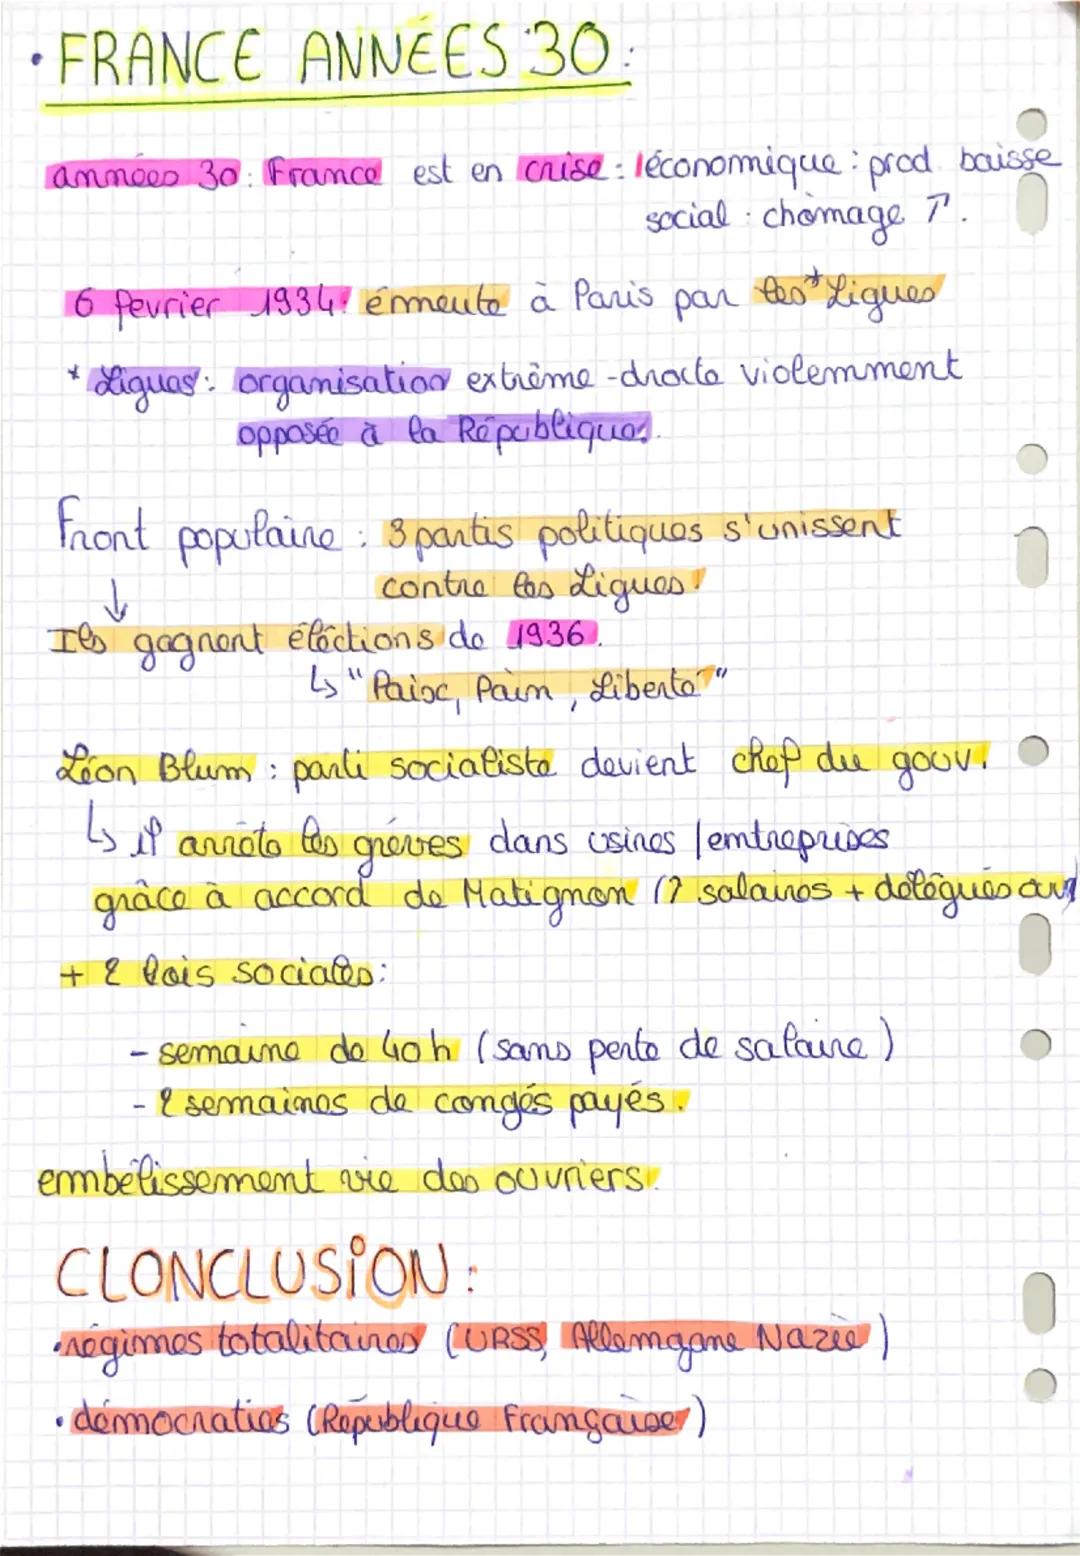 • FRANCE ANNÉES 30 :
années 30 : France est en crise : économique : prod. baisse
social : chômage ↑.
6 fevrier 1934 : émeute à Paris par les* Ligues
* Ligues : organisation extrême-droite violemment
opposée à la République.
Front populaire : 3 partis politiques s'unissent
contre les Ligues
↓
Ils gagnent éléctions de 1936.
↳ "Paix, Pain, Liberté"
Léon Blum : parti socialiste devient chef du gouv.
↳ il arrête les grèves dans usines / entreprises
grâce à accord de Matignon (↑ salaires + délégués
+ 2 lois sociales :
- semaine de 40h (sans perte de salaire)
- 2 semaines de congés payés.
embélissement vie des ouvriers.
CLONCLUSION :
• régimes totalitaires (URSS, Allemagne Nazie)
• démocraties (République Française)